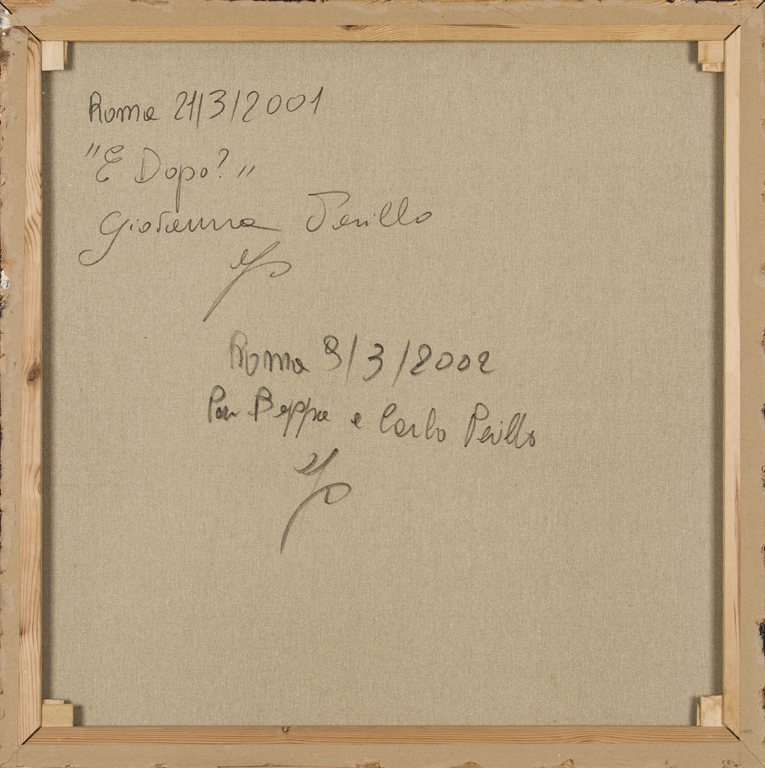 Roma 21/3/2001
"E Dopo?"
Giovanna Perillo
GP
Roma 8/3/2002
Per Beppe e Carlo Perillo
GP